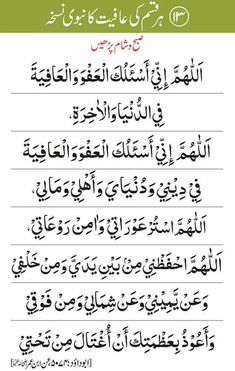 ۱۳ ہر قسم کی عافیت کا نبوی نسخہ
صبح و شام پڑھیں
اَللّٰهُمَّ إِنِّيْ أَسْئَلُكَ الْعَفْوَ وَالْعَافِيَةَ
فِي الدُّنْيَا وَالْاٰخِرَةِ،
اَللّٰهُمَّ إِنِّيْ أَسْئَلُكَ الْعَفْوَ وَالْعَافِيَةَ
فِيْ دِيْنِيْ وَدُنْيَايَ وَأَهْلِيْ وَمَالِيْ،
اَللّٰهُمَّ اسْتُرْ عَوْرَاتِيْ وَاٰمِنْ رَوْعَاتِيْ،
اَللّٰهُمَّ احْفَظْنِيْ مِنْ بَيْنِ يَدَيَّ وَمِنْ خَلْفِيْ
وَعَنْ يَّمِيْنِيْ وَعَنْ شِمَالِيْ وَمِنْ فَوْقِيْ
وَأَعُوْذُ بِعَظَمَتِكَ أَنْ أُغْتَالَ مِنْ تَحْتِيْ
[ابوداؤد: ۵۰۷۴، عن ابن عمر]